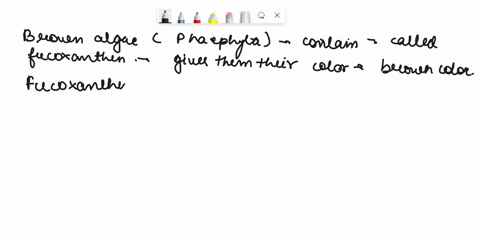 Brown algae ( Phaephyta) → contain → called
fucoxanthin → gives them their color → brown color.
Fucoxanthe